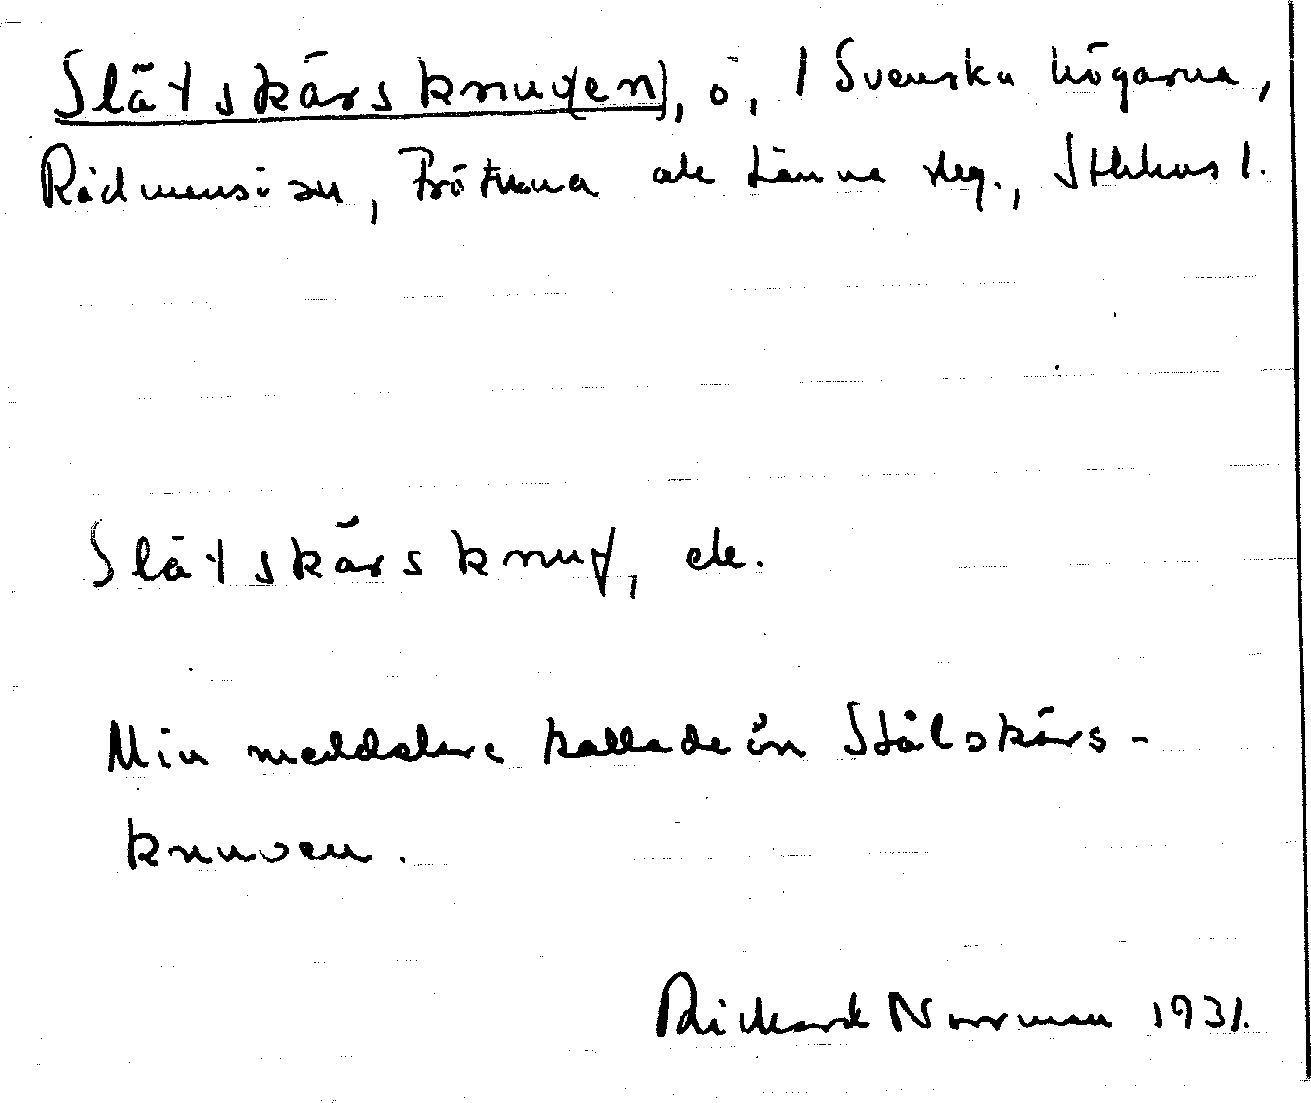 Slätskärsknuv(en), ö, I Svenska högarna,
Rådmansö sn, Frötuna och Länna skg., Sthlms l.
Slätskärsknuv, ck.
Min meddelare kallade ön Stålskärs-
knuven.
Rickard Norrman 1931.